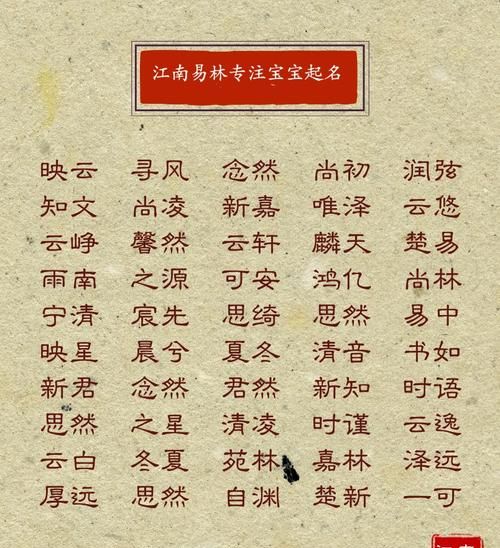 江南易林专注宝宝起名
映云 寻风 念然 尚初 润弦
知文 尚凌 新嘉 唯泽 云悠
云峥 馨然 云轩 麟天 楚易
雨南 之源 可安 鸿亿 尚林
宁清 宸先 思绮 思然 易中
映星 晨兮 夏冬 清音 书如
新君 念然 君然 新知 时语
思然 之星 清凌 时谨 云逸
云白 冬夏 苑林 嘉林 泽远
厚远 思然 自渊 楚新 一可